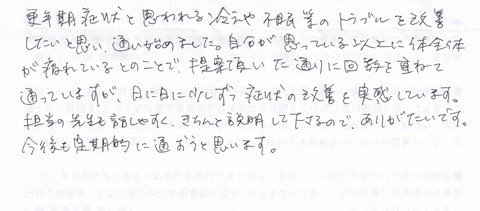 更年期症状と思われる冷えや不眠等のトラブルを改善
したいと思い、通い始めました。自分が思っている以上に体全体
が疲れているとのことで、提案頂いた通りに回数を重ねて
通っていますが、日に日に少しずつ症状の改善を実感しています。
担当の先生も話しやすく、きちんと説明して下さるので、ありがたいです。
今後も定期的に通おうと思います。